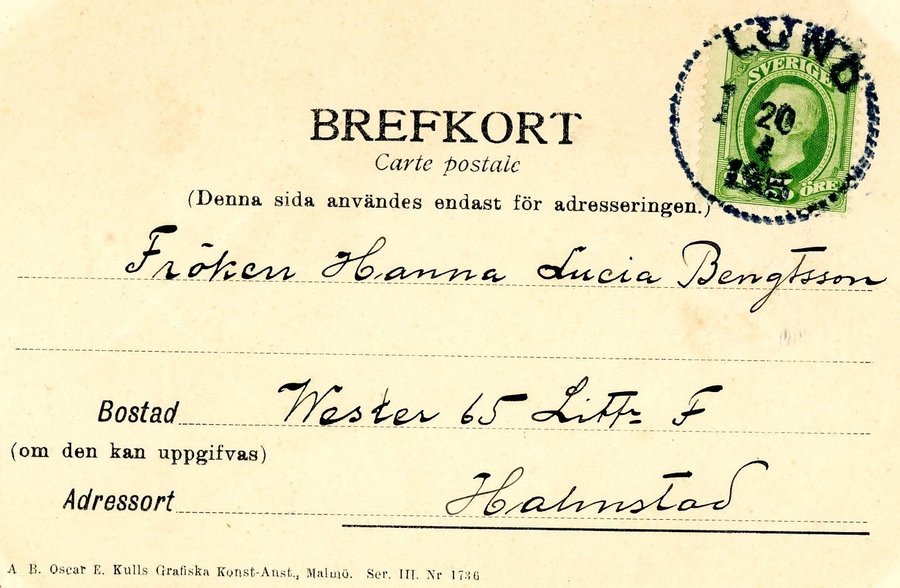 LUND
SVERIGE
20
4
ÖRE
BREFKORT
Carte postale
(Denna sida användes endast för adresseringen.)
Fröken Hanna Lucia Bengtsson
Bostad Wester 65 Littr F
(om den kan uppgifvas)
Adressort Halmstad
A B. Oscar E. Kulls Grafiska Konst-Anst., Malmö. Ser. III. Nr 1736